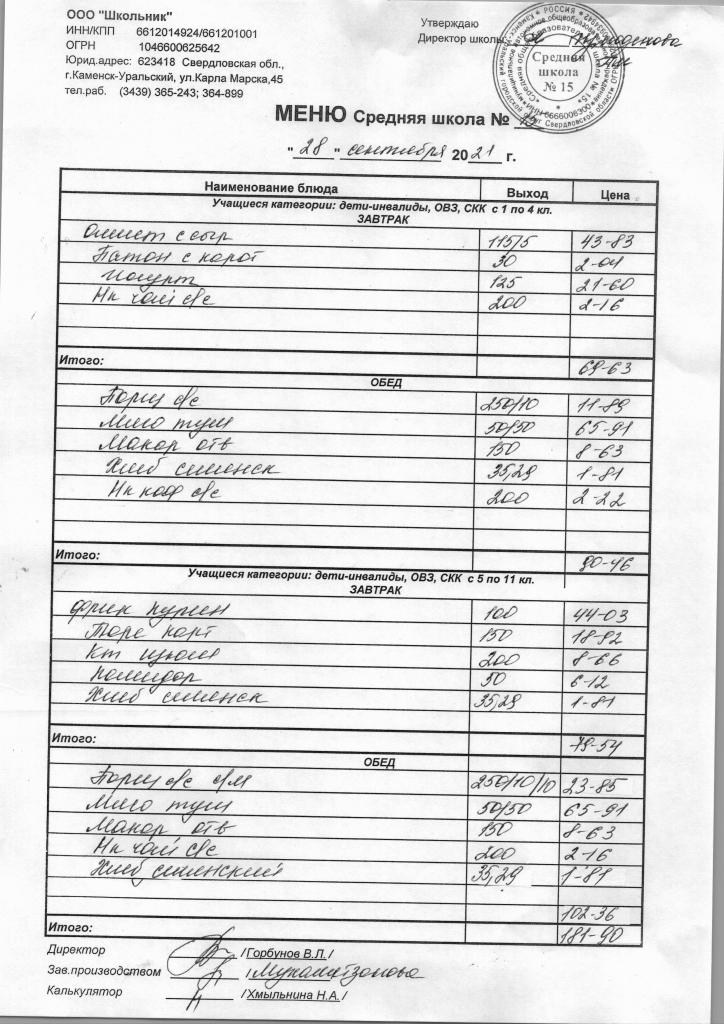 ООО "Школьник"
ИНН/КПП 6612014924/661201001
ОГРН 1046600625642
Юрид.адрес: 623418 Свердловская обл.,
г.Каменск-Уральский, ул.Карла Марска,45
тел.раб. (3439) 365-243; 364-899
Утверждаю
Директор школы
Средняя
школа
№ 15
МЕНЮ Средняя школа № 15
"28" сентября 2021 г.
Наименование блюда Выход Цена
Учащиеся категории: дети-инвалиды, ОВЗ, СКК с 1 по 4 кл.
ЗАВТРАК
Омлет с сыр 115/5 43-83
Батон с нарот 30 2-04
Йогурт 125 21-60
Нк чай с/с 200 2-16
Итого: 69-63
ОБЕД
Борщ с/с 250/10 11-89
Мясо туш 50/50 65-91
Макар отв 150 8-63
Хлеб смменск 35,29 1-81
Нк коф с/с 200 2-22
Итого: 90-46
Учащиеся категории: дети-инвалиды, ОВЗ, СКК с 5 по 11 кл.
ЗАВТРАК
Фрик курин 100 44-03
Пюре карт 150 18-92
Кт изюм 200 8-66
Помидор 50 6-12
Хлеб смменск 35,29 1-81
Итого: 79-54
ОБЕД
Борщ с/с с/м 250/10/10 23-85
Мясо туш 50/50 65-91
Макар отв 150 8-63
Нк чай с/с 200 2-16
Хлеб 35,29 1-81
102-36
Итого: 181-90
Директор / Горбунов В.Л. /
Зав.производством /
Калькулятор / Хмыльнина Н.А. /